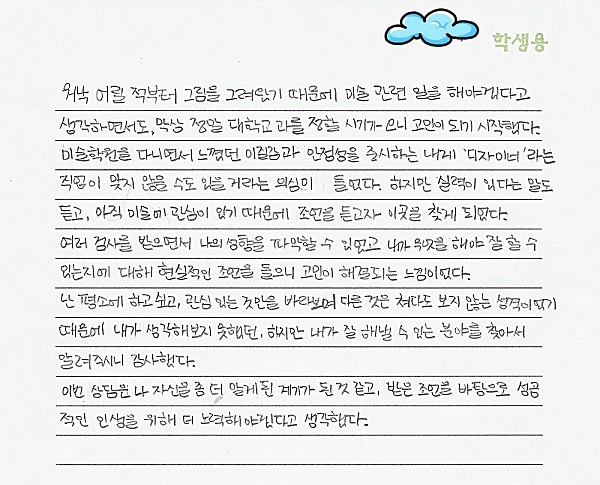 학생용
워낙 어릴 적부터 그림을 그려왔기 때문에 미술 관련 일을 해야겠다고
생각하면서도, 막상 정말 대학교 과를 정할 시기가 오니 고민이 되기 시작했다.
미술학원을 다니면서 느꼈던 이질감과 안정성을 중시하는 내게 '디자이너'라는
직업이 맞지 않을 수도 있을 거라는 의심이 들었다. 하지만 실력이 있다는 말도
듣고, 아직 미술에 관심이 있기 때문에 조언을 듣고자 이곳을 찾게 되었다.
여러 검사를 받으면서 나의 성향을 파악할 수 있었고 내가 무엇을 해야 잘 할 수
있는지에 대해 현실적인 조언을 들으니 고민이 해결되는 느낌이었다.
난 평소에 하고 싶고, 관심 있는 것만을 바라보며 다른 것은 쳐다도 보지 않는 성격이었기
때문에 내가 생각해보지 못했던, 하지만 내가 잘 해낼 수 있는 분야를 찾아서
알려주시니 감사했다.
이번 상담은 나 자신을 좀 더 알게 된 계기가 된 것 같고, 받은 조언을 바탕으로 성공
적인 인생을 위해 더 노력해야겠다고 생각했다.